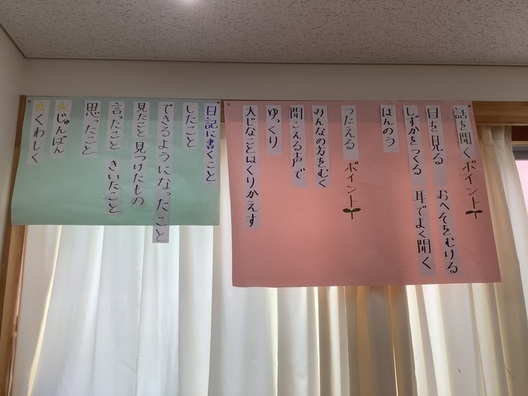 話を聞くポイント
目を見る　おへそをむける
しずかをつくる　耳でよく聞く
はんのう
つたえる　ポイント
みんなの方をむく
聞こえる声で
ゆっくり
大じなことはくりかえす
日記に書くこと
したこと
できるようになったこと
見たこと 見つけたもの
言ったこと　きいたこと
思ったこと
☆じゅんばん
☆くわしく